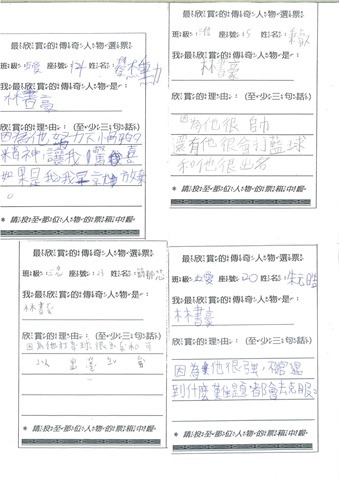 最欣賞的傳奇人物選票
班級: 座號: 14 姓名:
我最欣賞的傳奇人物是:
林書豪
欣賞的理由: (至少三句話)
因為他努力不懈的
精神,讓我驚喜
如果是我我早就放棄
。
* 請投至那位人物的票箱中喔
最欣賞的傳奇人物選票
班級: 座號: 15 姓名:
我最欣賞的傳奇人物是:
林書豪
欣賞的理由: (至少三句話)
因為他很帥
還有他很會打藍球
和他很出名
* 請投至那位人物的票箱中喔
最欣賞的傳奇人物選票
班級: 座號: 姓名:
我最欣賞的傳奇人物是:
林書豪
欣賞的理由: (至少三句話)
因為他打球很
* 請投至那位人物的票箱中喔
最欣賞的傳奇人物選票
班級: 座號: 20 姓名: 朱元皓
我最欣賞的傳奇人物是:
林書豪
欣賞的理由: (至少三句話)
因為他很強,不管遇
到什麼難題都會去克服
* 請投至那位人物的票箱中喔